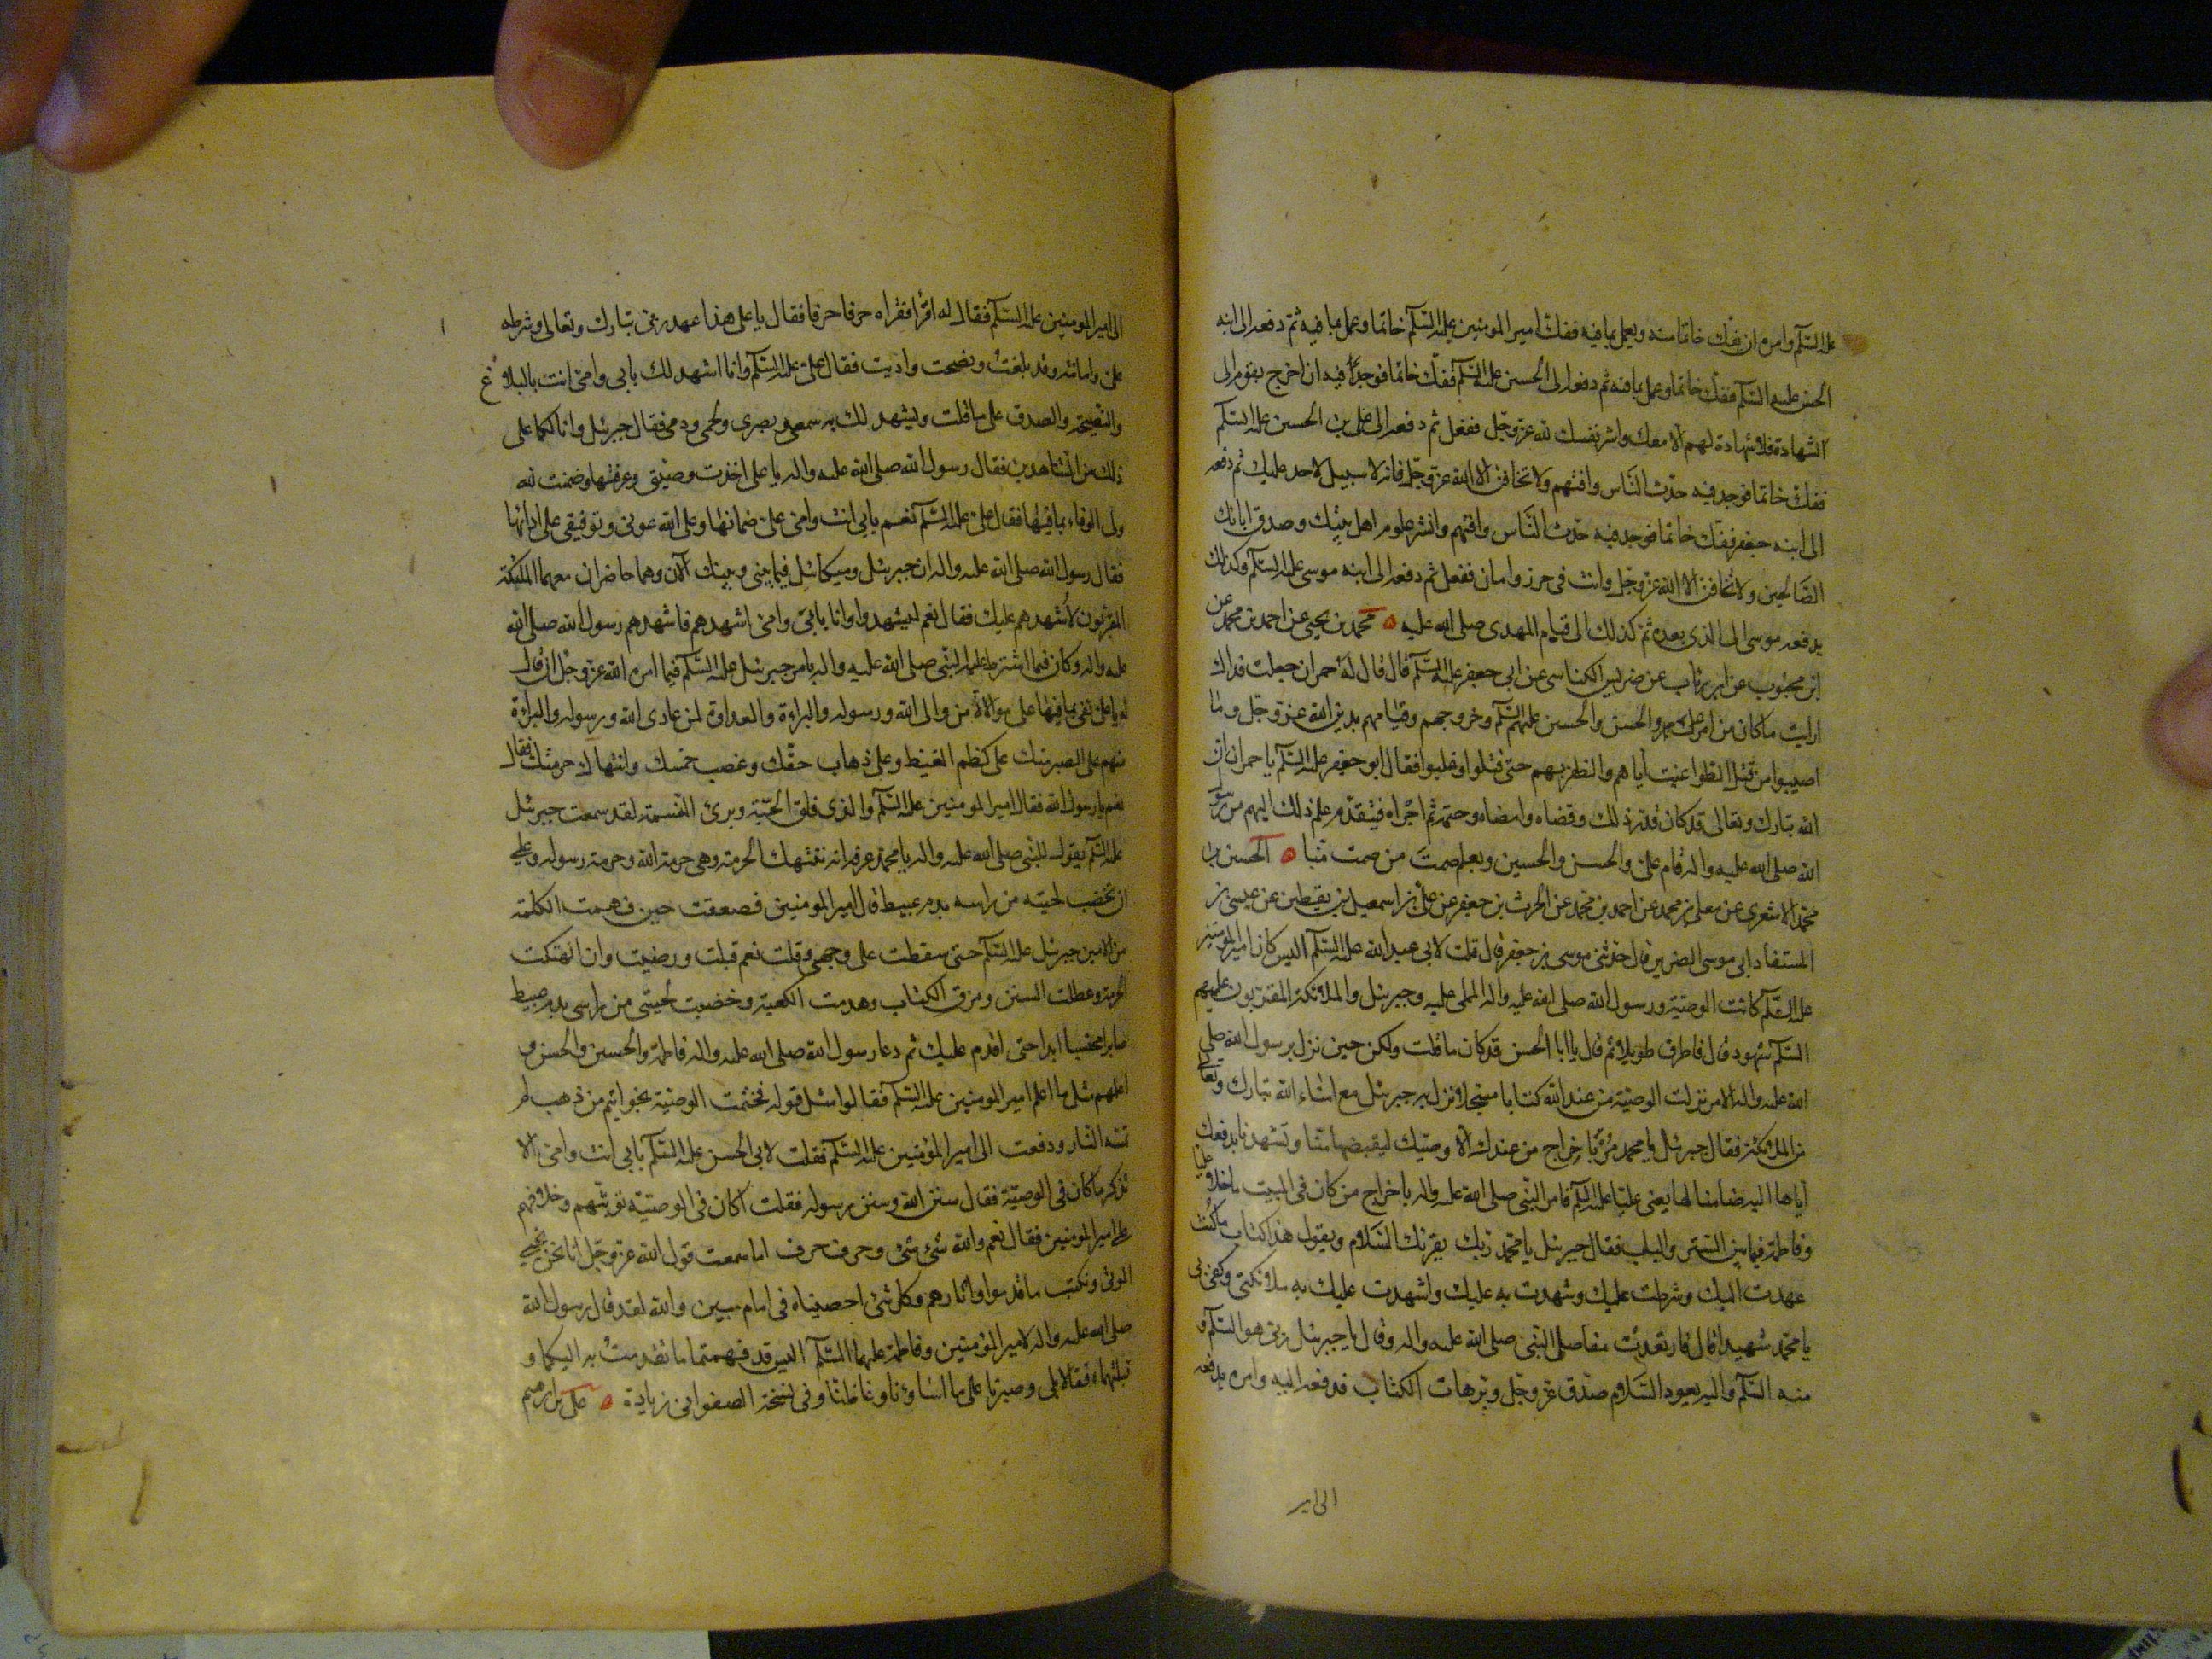 عليه السّلم وامره ان يفك خاتما منه ويعمل بما فيه ففك امير المومنين عليه السّلم خاتما وعمل بما فيه ثم دفعه الى ابنه
الحسن عليه السّلم ففك خاتما وعمل بما فيه ثم دفعه الى الحسين عليه السّلم ففك خاتما فوجد فيه ان اخرج بقوم الى
الشهادة فلا شهادة لهم الا معك واشر نفسك لله عزّ وجلّ ففعل ثم دفعه الى على بن الحسين عليه السّلم
ففك خاتما فوجد فيه حدّث النّاس وافتهم ولا تخافنّ الا الله عزّ وجلّ فانه لا سبيل لاحد عليك ثم دفعه
الى ابنه جعفر ففك خاتما فوجد فيه حدّث النّاس وافتهم وانشر علوم اهل بيتك وصدق اباءك
الصّالحين ولا تخافنّ الا الله عزّ وجلّ وانت فى حرز وامان ففعل ثم دفعه الى ابنه موسى عليه السّلم وكذلك
يدفعه موسى الى الذى بعده ثم كذلك الى قيام المهدى صلى الله عليه محمد بن يحيى عن احمد بن محمد عن
ابن محبوب عن ابن رئاب عن ضريس الكناسى عن ابى جعفر عليه السّلم قال قال له حمران جعلت فداك
ارايت ما كان من امر على والحسن والحسين عليهم السّلم وخروجهم وقيامهم بدين الله عزّ وجلّ وما
اصيبوا من قتل الطواغيت اياهم والظفر بهم حتى قتلوا وغلبوا فقال ابو جعفر عليه السّلم يا حمران ان
الله تبارك وتعالى قد كان قدّر ذلك وقضاه وامضاه وحتمه ثم اجراه فيتقدّم علم ذلك اليهم من رسول
الله صلى الله عليه واله قام على والحسن والحسين وبعلم صمت من صمت منّا الحسين بن
محمّد الاشعرى عن معلى بن محمد عن احمد بن محمد عن الحرث بن جعفر عن على بن اسمعيل بن يقطين عن عيسى بن
المستفاد ابى موسى الضرير قال حدّثنى موسى بن جعفر قال قلت لابى عبد الله عليه السّلم اليس كان امير المومنين
عليه السّلم كاتب الوصيّة ورسول الله صلى الله عليه واله المملى عليه وجبرئل والملائكة المقرّبون عليهم
السّلم شهود قال فاطرق طويلا ثم قال يا ابا الحسن قد كان ما قلت ولكن حين نزل برسول الله صلى
الله عليه واله الامر نزلت الوصيّة من عند الله كتابا مسجلا نزل به جبرئل مع امناء الله تبارك وتعالى
من الملائكة فقال جبرئل يا محمد مر باخراج من عندك الا وصيّك ليقبضها منّا وتشهدنا بدفعك
اياها اليه ضامنا لها يعنى عليّا عليه السّلم فامر النّبى صلى الله عليه واله باخراج من كان فى البيت ما خلا عليّا
وفاطمة فيما بين السّتر والباب فقال جبرئل يا محمّد ربّك يقرئك السّلام ويقول هذا كتاب ما كنت
عهدت اليك وشرطت عليك وشهدت به عليك واشهدت عليك به ملائكتى وكفى بى
يا محمّد شهيدا قال فارتعدت مفاصل النّبى صلى الله عليه واله وقال يا جبرئل ربّى هو السّلم و
منه السّلم واليه يعود السّلام صدق عزّ وجلّ وبرّ هات الكتاب فدفعه اليه وامره بدفعه
الى امير
الى امير المومنين عليه السّلم فقال له اقرأ فقراه حرفا حرفا فقال يا على هذا عهد ربّى تبارك وتعالى وشرطه
علىّ وامانته وقد بلغت ونصحت واديت فقال على عليه السّلم وانا اشهد لك بابى وامى انت بالبلاغ
والنّصيحة والصدق على ما قلت ويشهد لك به سمعى وبصرى ولحمى ودمى فقال جبرئل وانا لكما على
ذلك من الشّاهدين فقال رسول الله صلى الله عليه واله يا على اخذت وصيّتى وعرفتها وضمنت لله
ولى الوفاء بما فيها فقال على عليه السّلم نعم بابى انت وامى علىّ ضمانها وعلى الله عونى وتوفيقى على ادائها
فقال رسول الله صلى الله عليه واله ان جبرئل وميكائل فيما بينى وبينك الآن وهما حاضران معهما الملئكة
المقرّبون لاُشهدهم عليك فقال نعم ليشهدوا وانا بابى وامى اشهدهم فاشهدهم رسول الله صلى الله
عليه واله وكان فيما اشترط عليه النّبى صلى الله عليه واله بامر جبرئل عليه السّلم فيما امره الله عزّ وجلّ ان قال
له يا على تفى بما فيها على موالاة من والى الله ورسوله والبراءة والعداوة لمن عادى الله ورسوله والبراءة
منهم على الصبر منك على كظم الغيظ وعلى ذهاب حقّك وغصب خمسك وانتهاك حرمتك فقال
نعم يا رسول الله فقال امير المومنين عليه السّلم والذى فلق الحبّة وبرئ النّسمة لقد سمعت جبرئل
عليه السّلم يقول للنّبى صلى الله عليه واله يا محمد عرفه انه تنتهك الحرمة وهى حرمة الله وحرمة رسوله وعلى
ان تخضب لحيته من راسه بدم عبيط قال امير المومنين فصعقت حين فهمت الكلمة
من الامين جبرئل عليه السّلم حتى سقطت على وجهى وقلت نعم قبلت ورضيت وان انتهكت
الحرمة وعطلت السنن ومزق الكتاب وهدمت الكعبة وخضبت لحيتى من راسى بدم عبيط
صابرا محتسبا ابدا حتى اقدم عليك ثم دعا رسول الله صلى الله عليه واله فاطمة والحسين والحسن و
اعلمهم مثل ما اعلم امير المومنين عليه السّلم فقالوا مثل قوله فختمت الوصيّة بخواتيم من ذهب لم
تمسّه النّار ودفعت الى امير المؤمنين عليه السّلم فقلت لابى الحسن عليه السّلم بابى انت وامى الا
تذكر ما كان فى الوصيّة فقال سنن الله وسنن رسوله فقلت اكان فى الوصيّة توثّبهم وخلافهم
على امير المومنين فقال نعم والله شئ شئ وحرف حرف اما سمعت قول الله عزّ وجلّ انا نحن نحيى
الموتى ونكتب ما قدموا واثارهم وكل شئ احصيناه فى امام مبين والله لقد قال رسول الله
صلى الله عليه واله لامير المؤمنين وفاطمة عليهما السّلم اليس قد فهمتما ما تقدمت به اليكما و
قبلتماه فقالا بلى وصبرنا على ما اساؤنا وغاظنا وفى نسخة الصفوانى زيادة على بن ابرهيم